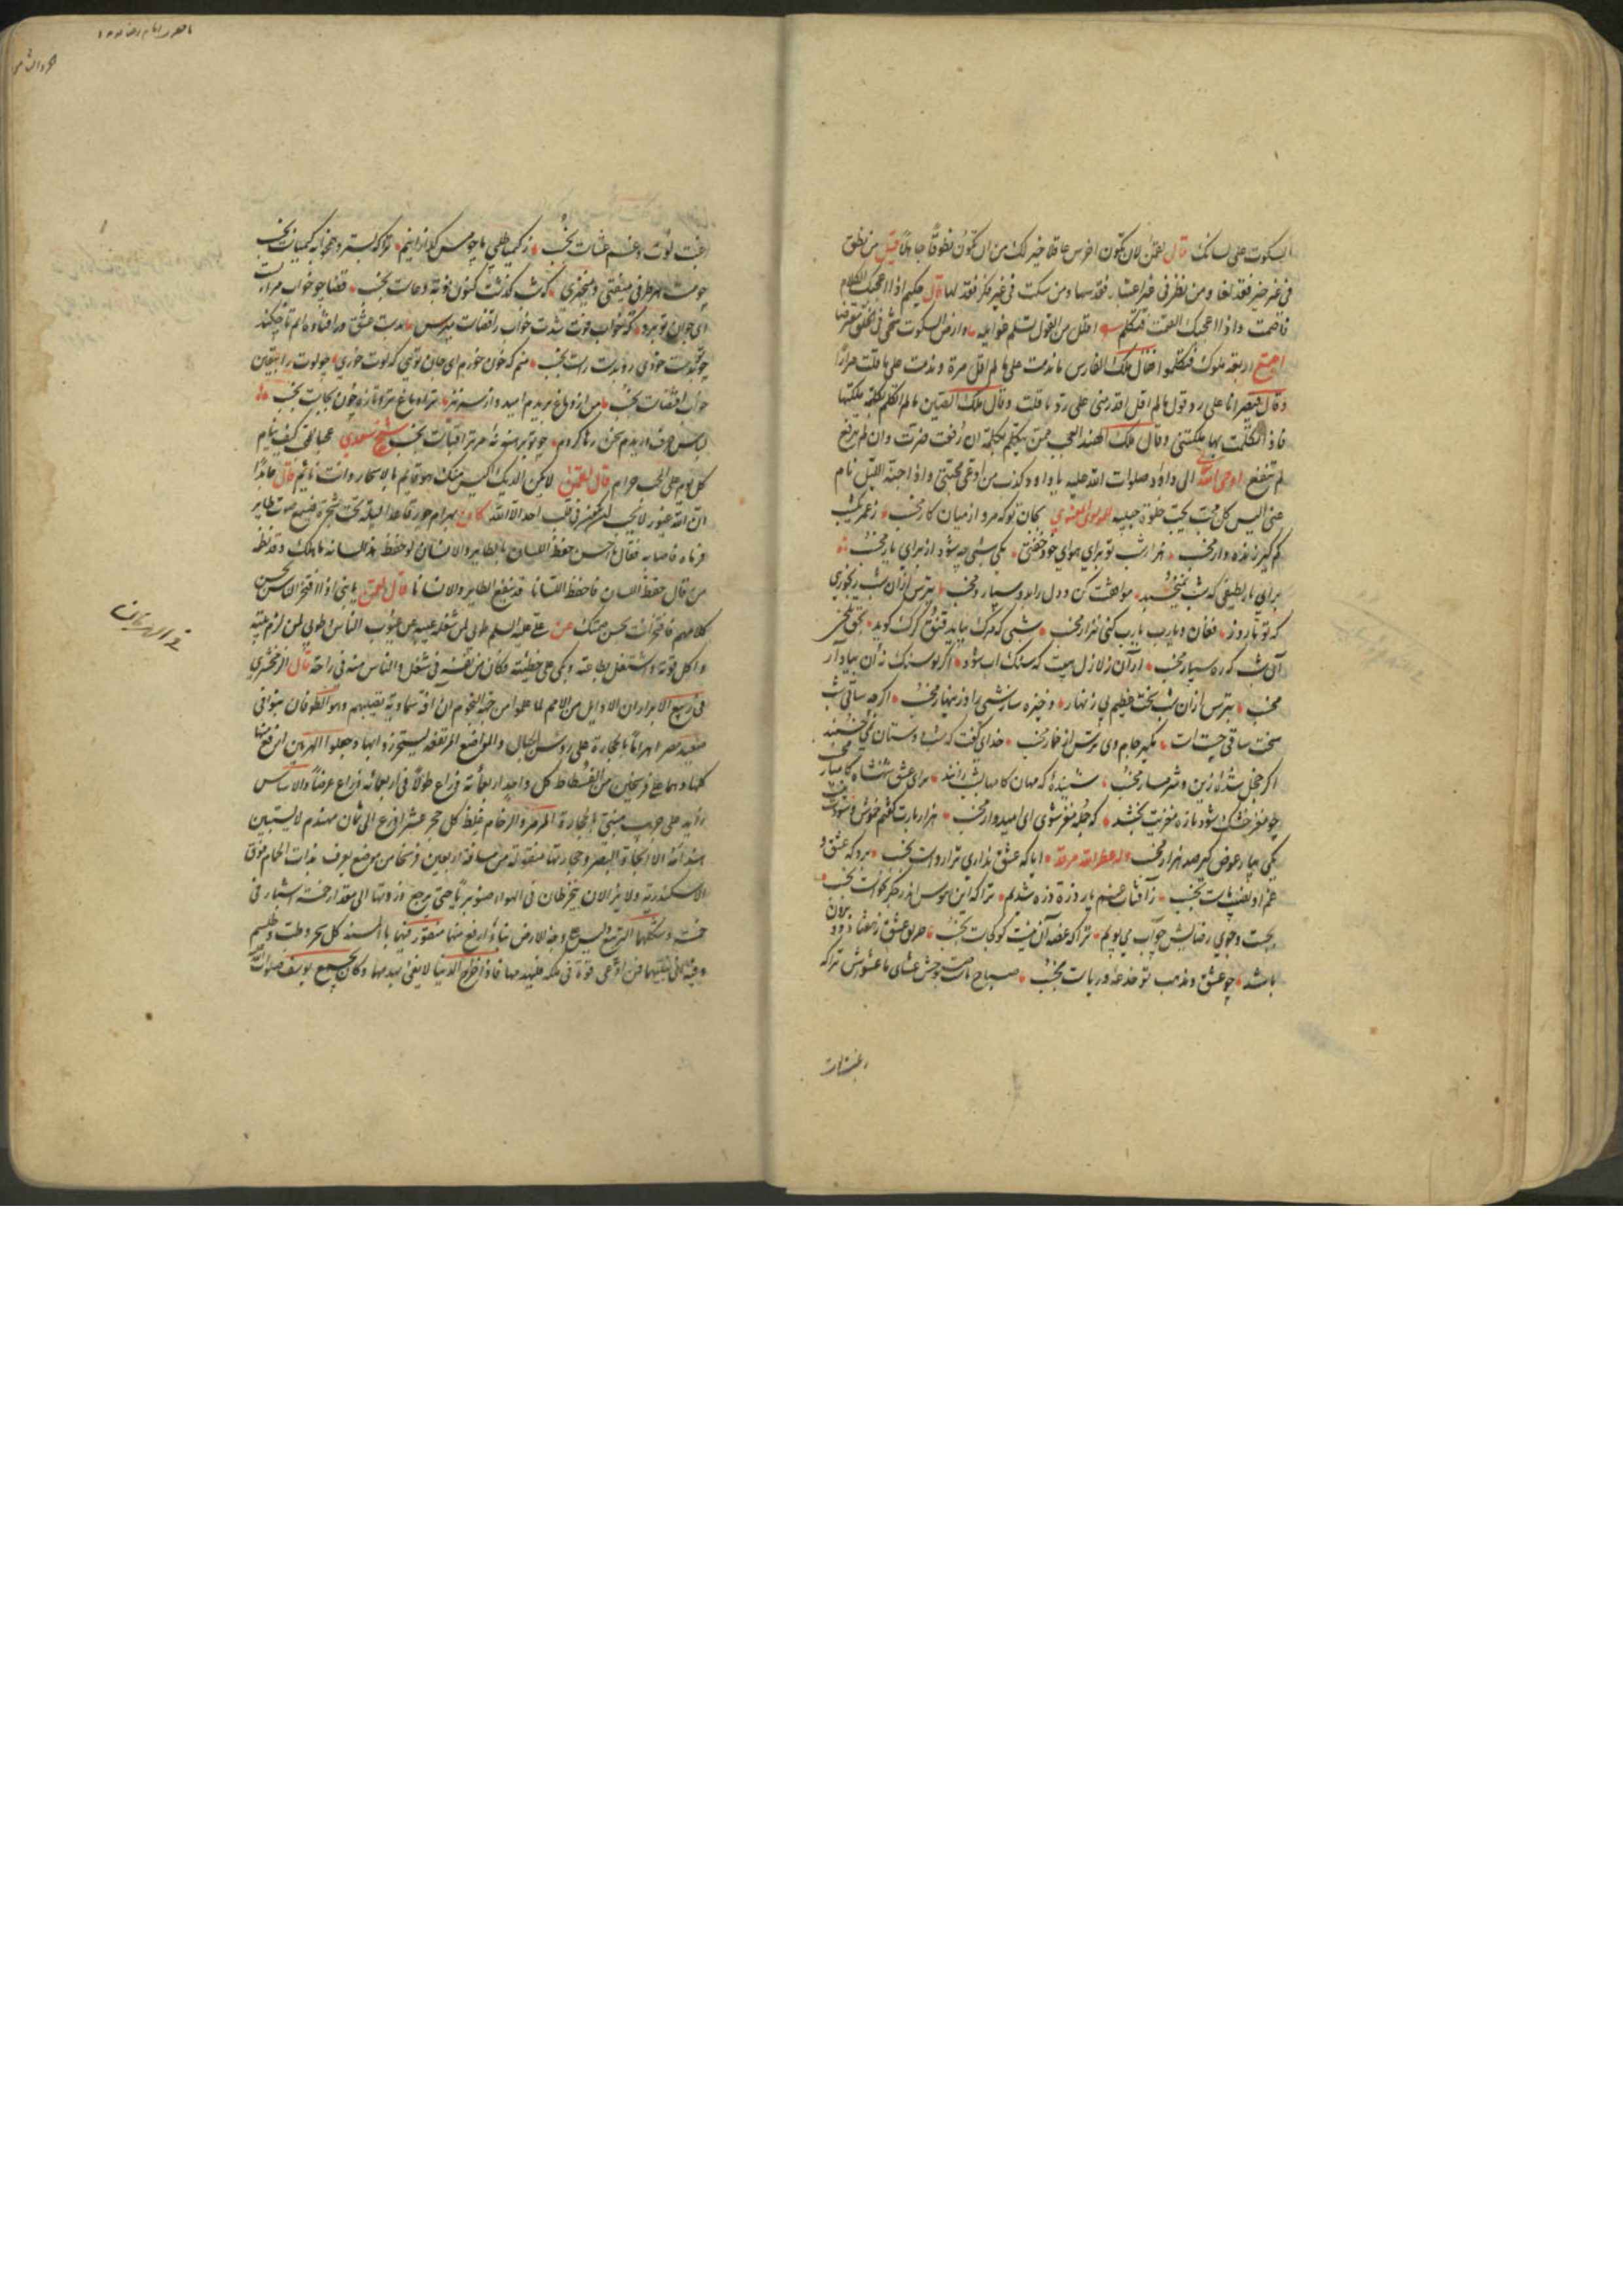 السكوت على لسانك قال لقمن لان تكون اخرس عاقلا خير لك من ان تكون نطوقا جاهلا قيل من نطق
فى غير خير فقد لغا ومن نظر فى غير اعتبار فقد سها ومن سكت فى غير فكر فقد لها قال حكيم اذا اعجبك الكلام
فاصمت واذا اعجبك الصمت فتكلم اقلل من القول تسلم غوايله وارض السكوت
اجتمع اربعة ملوك فتكلموا فقال ملك الفارس ما ندمت على ما لم اقل مرة وندمت على ما قلت مرارا
وقال قيصر انا على رد قول ما لم اقل اقدر منى على رد ما قلت وقال ملك الصين ما لم اتكلم بكلمة ملكتها
فاذا تكلمت بها ملكتنى وقال ملك الهند العجب ممن يتكلم بكلمة ان رفعت ضرت وان لم ترفع
لم تنفع اوحى الله الى داود صلوات الله عليه يا داود كذب من ادعى محبتى واذا اجنه الليل نام
عنى اليس كل محب يحب خلوة حبيبه للمولوى المعنوى بجان تو كه مرو از ميان كار مخسب ز عمر يكشب
كم گير زنده دار مخسب هزار شب تو براى هواى خود خفتى يكى شبى چه شود از براى يار مخسب
براى يار لطيفى كه شب نميخسبد موافقت كن و دل را بدو سپار و مخسب بترس ازان شب رنجورى
كه تو تا روز فغان و يارب يارب كنى بزار مخسب شبى كه مرگ بيايد قنق كرك گويد بحق تلخى
آن شب كه ره سپار مخسب ازان زلازل هيبت كه سنگ آب شود اگر تو سنگ نه آن بياد آر
مخسب بترس ازان شب سخت عظيم بى زنهار و ذخيره ساز شبى را و زينهار مخسب اگر چه ساقى شب
سخت ساقى چستست مگير جام وى و بترس از خمار مخسب خداى گفت كه شب دوستان نمى خسبند
اگر خجل شده زين و شرمسار مخسب شنيده كه مهان كامها بشب رانند براى عشق شهنشاه كاميار مخسب
چو مغز خشك شود تازه مغزيت بخشد كه جمله مغز شوى اى اميدوار مخسب هزار بارت گفتم خموش و سودت نيست
يكى بيار و عوض گير صد هزار مخسب وله عطر الله مرقده ايا كه عشق ندارى ترا رواست بخسب برو كه عشق و
غم او نصيب ماست بخسب ز آفتاب غم يار ذره ذره شديم ترا كه اين هوس اندر جگر نخاست بخسب
بجست و جوى رضايش چو آب مى پويم ترا كه غصه آن نيست كو كجاست بخسب طريق عشق ز هفتاد و دو برون
باشد چو عشق و مذهب تو خدعه و رياست بخسب صباح ماست عشاى ما عشوش ترا كه
رغبت لوت
رغبت لوت و غم عشاست بخسب ز كيميا طلبى ما چو مس گدازانيم ترا كه بستر و همخوابه كيمياست بخسب
چو مست هر طرفى ميفتى و ميخيزى كه شب گذشت كنون نوبت دعاست بخسب قضا چو خواب مرا بست
اى جوان تو برو كه خواب فوت شدت خواب را قضاست بخسب بدست عشق در افتاده ايم تا چكند
چو تو بدست خودى رو بدست راست بخسب منم كه خون خورم اى جان توى كه لوت خورى چو لوت را بيقين
خواب اقتضاست بخسب من از دماغ بريدم اميد و از سر نيز ترا دماغ تر و تازه چون بجاست بخسب
لباس حرف دريدم سخن رها كردم چو تو برهنه نه مر ترا قباست بخسب شيخ سعدى عجبا للمحب كيف ينام
كل نوم على المحب حرام قال لقمن لا يكن الديك اكيس منك هو قائم بالاسحار وانت نائم قال
ان الله غيور لا يحب ان يكون فى قلب احد الا الله كان بهرام جور قاعدا ليلة تحت شجرة فسمع صوت طاير
فرماه فاصابه فقال ما احسن حفظ اللسان بالطاير والانسان لو حفظ هذا لسانه ما هلك وقد نظمه
من قال حفظ اللسان فاحفظ اللسانا قد ينفع الطاير والانسانا قال لقمن يا بنى اذا افتخر الناس بحسن
كلامهم فافتخر انت بحسن صمتك عن على عليه السلم طوبى لمن شغله عيبه عن عيوب الناس وطوبى لمن لزم بيته
واكل قوته واشتغل بطاعته وبكى على خطيئته فكان من نفسه فى شغل والناس منه فى راحة قال الزمخشرى
فى ربيع الابرار ان الاوايل من الامم لما علموا من جهة النجوم ان آفة سماوية تصيبهم وهو الطوفان بنوا فى
صعيد مصر اهراما بالحجارة على رؤس الجبال والمواضع المرتفعة ليتحرزوا بها وجعلوا الهرمين ارفع منها
كلها وهما على فرسخين من الفسطاط كل واحد اربعمائة ذراع طولا فى اربعمائة ذراع عرضا والاساس
زايد على جريب مبنى بالحجارة المرمر والرخام غلظ كل حجر عشر اذرع الى ثمان مهندم لا يستبين
هندامه الا الحاد البصر وحجارتها منقولة من مسافة اربعين فرسخا من موضع يعرف بذات الحمام فوق
الاسكندرية ولا يزالان ينخرطان فى الهواء صنوبريا حتى يرجع ذروتها الى مقدار خمسة اشبار فى
خمسة وشكلها التربيع وليس على وجه الارض بناء ارفع منها منقور فيها بالمسند كل سحر وطب وطلسم
وفيه انى بنيتهما فمن ادعى قوة فى ملكه فليهدمها فاذا خراج الدنيا لا يفى بهدمها وكان يجمع يوسف صلوات
فى الهرمان